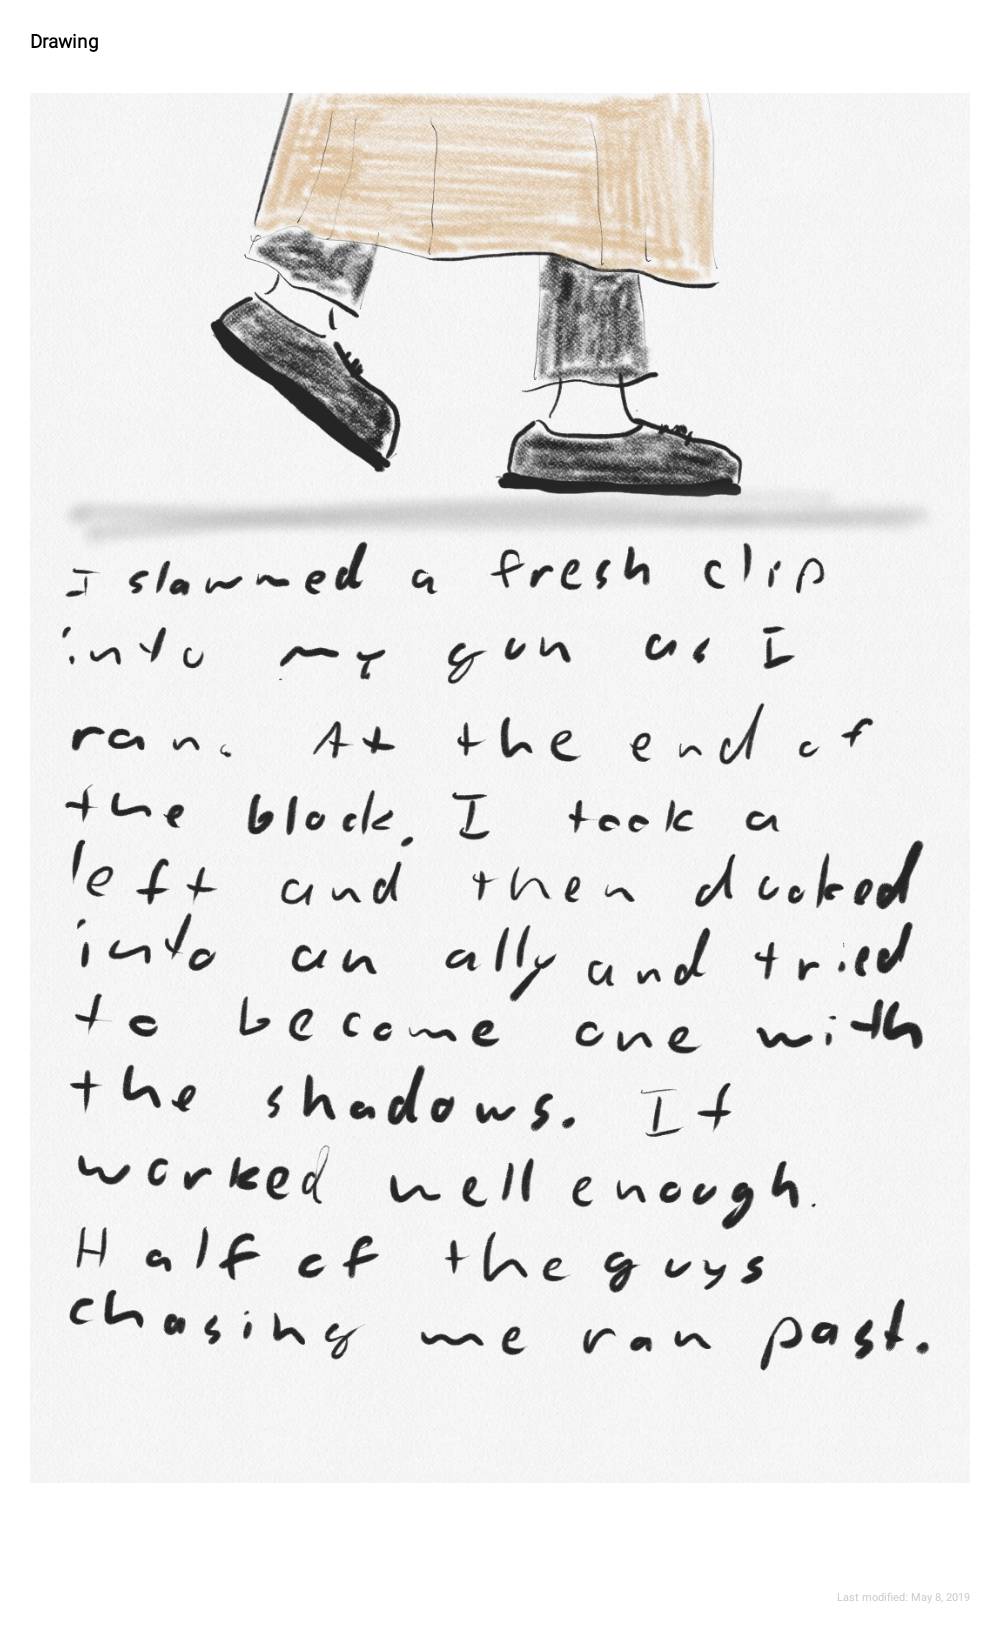 Drawing
I slammed a fresh clip
into my gun as I
ran. At the end of
the block, I took a
left and then ducked
into an ally and tried
to become one with
the shadows. It
worked well enough.
Half of the guys
chasing me ran past.
Last modified: May 8, 2019